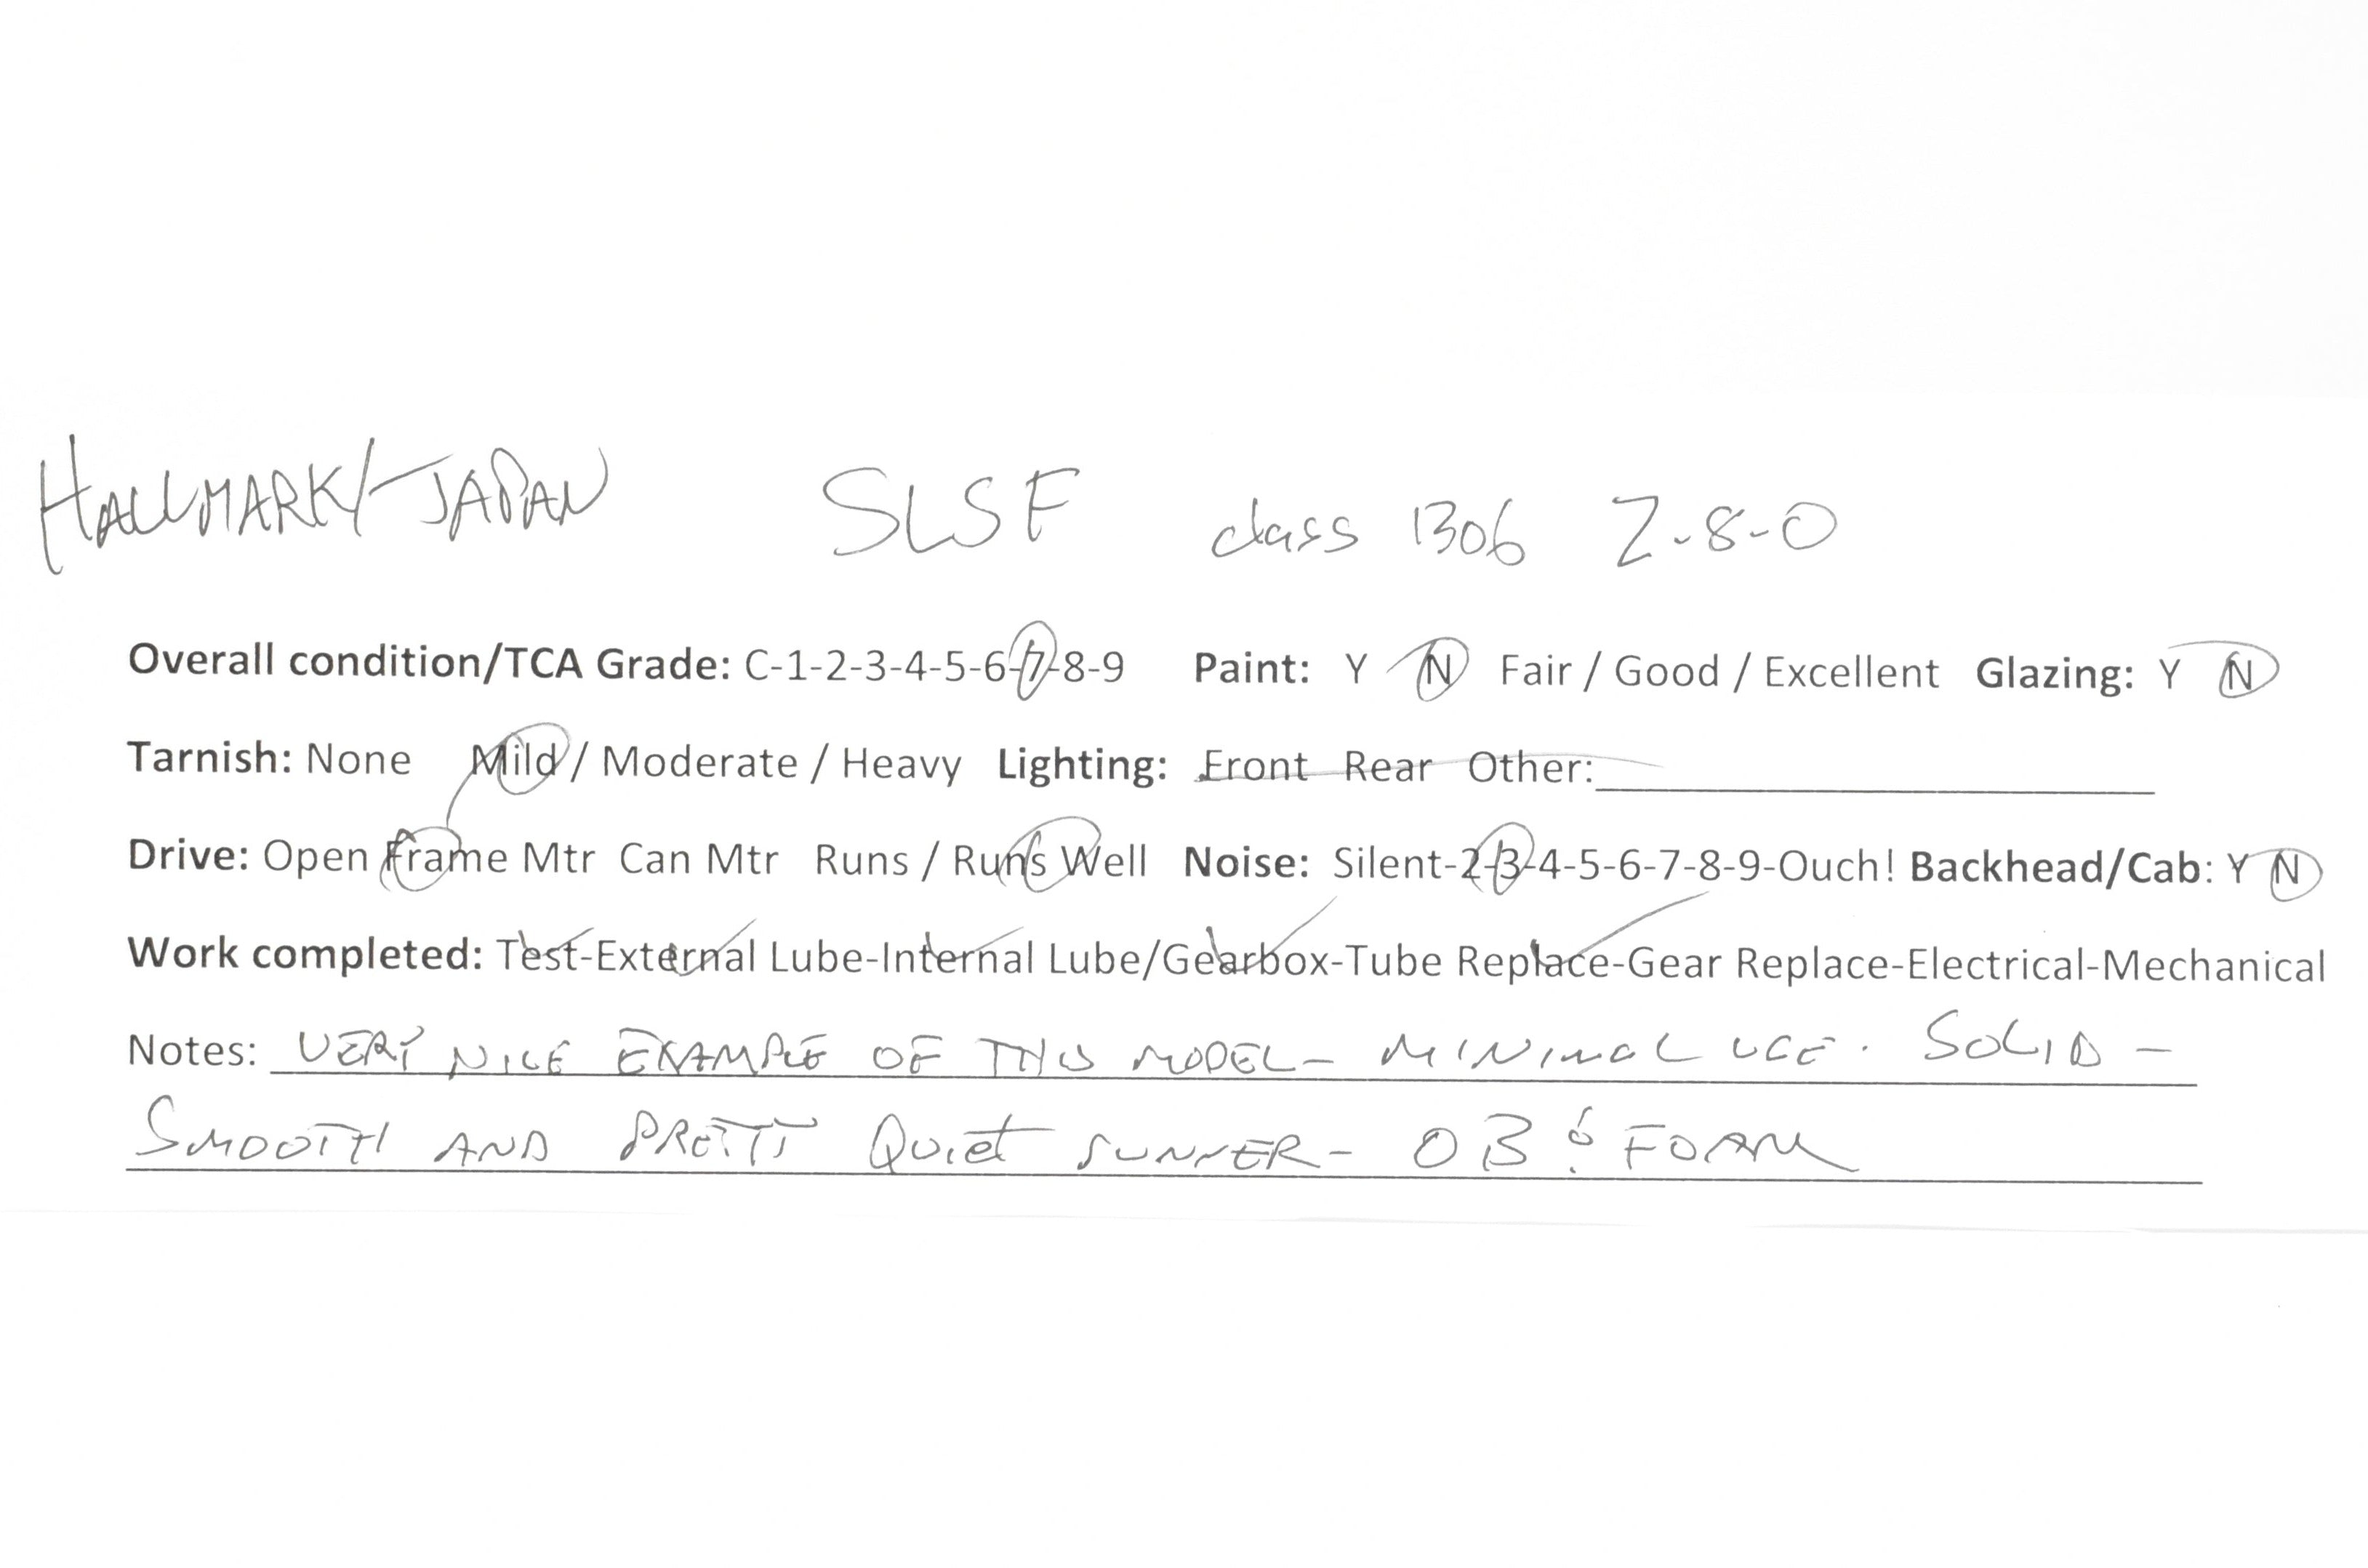 HALLMARK/JAPAN SLSF class 1306 2-8-0
Overall condition/TCA Grade: C-1-2-3-4-5-6-7-8-9 Paint: Y N Fair / Good / Excellent Glazing: Y N
Tarnish: None Mild / Moderate / Heavy Lighting: Front Rear Other:
Drive: Open Frame Mtr Can Mtr Runs / Runs Well Noise: Silent-2-3-4-5-6-7-8-9-Ouch! Backhead/Cab: Y N
Work completed: Test-External Lube-Internal Lube/Gearbox-Tube Replace-Gear Replace-Electrical-Mechanical
Notes: VERY NICE EXAMPLE OF THIS MODEL- MINIMAL USE. SOLID -
SMOOTH AND PRETTY QUIET RUNNER- OB & FOAM